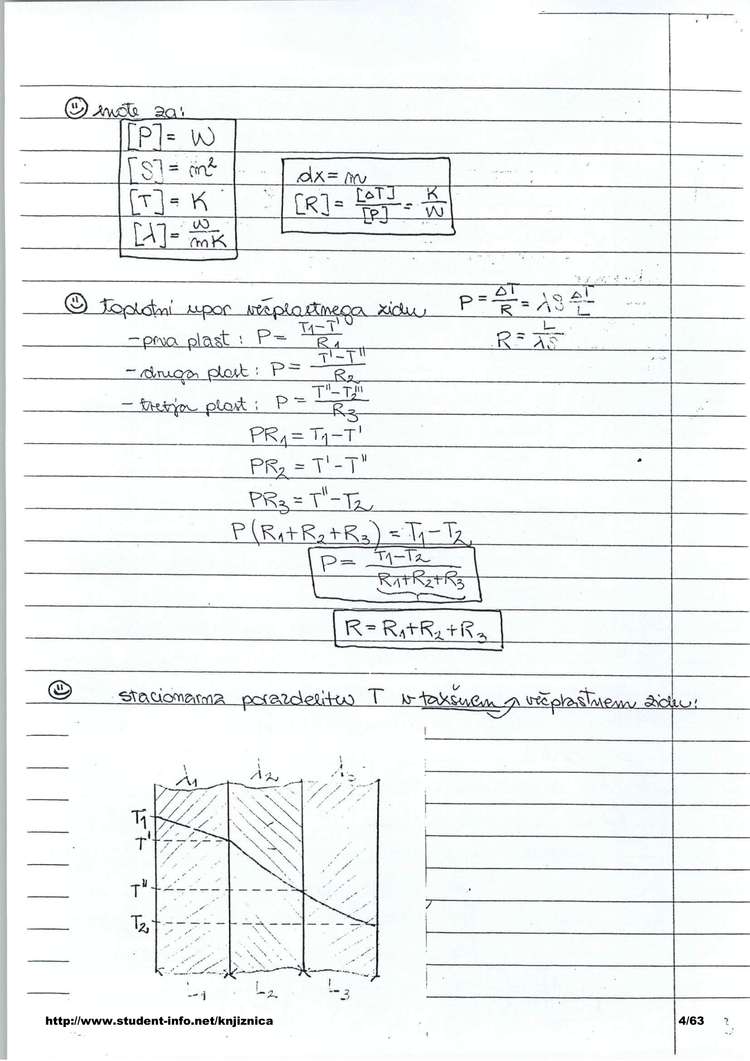 enote za:
[P] = W
[S] = m²
[T] = K
[λ] = W/mK
dx = m
[R] = [ΔT]/[P] = K/W
toplotni upor večplastnega zidu
P = ΔT/R = λS ΔT/L
R = L/λS
- prva plast: P = T₁-T'/R₁
- druga plast: P = T'-T''/R₂
- tretja plast: P = /R₃
PR₁ = T₁-T'
PR₂ = T'-T''
PR₃ = T''-T₂
P(R₁+R₂+R₃) = T₁-T₂
P = T₁-T₂/R₁+R₂+R₃
R = R₁+R₂+R₃
stacionarna porazdelitev T v takšnem večplastnem zidu:
λ₁ λ₂ λ₃
T₁
T'
T''
T₂
L₁ L₂ L₃
http://www.student-info.net/knjiznica 4/63